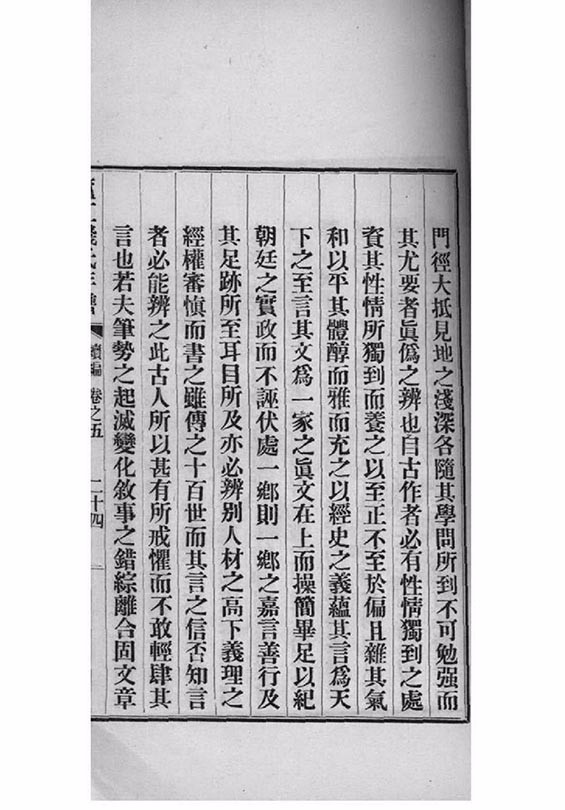 門徑大抵見地之淺深各隨其學問所到不可勉强而
其尤要者眞僞之辨也自古作者必有性情獨到之處
資其性情所獨到而養之以至正不至於偏且雜其氣
和以平其體醇而雅而充之以經史之義蘊其言爲天
下之至言其文爲一家之眞文在上而操簡畢足以紀
朝廷之實政而不誣伏處一鄉則一鄉之嘉言善行及
其足跡所至耳目所及亦必辨別人材之高下義理之
經權審慎而書之雖傳之十百世而其言之信否知言
者必能辨之此古人所以甚有所戒懼而不敢輕肆其
言也若夫筆勢之起滅變化敘事之錯綜離合固文章
續編 卷之五 二十四